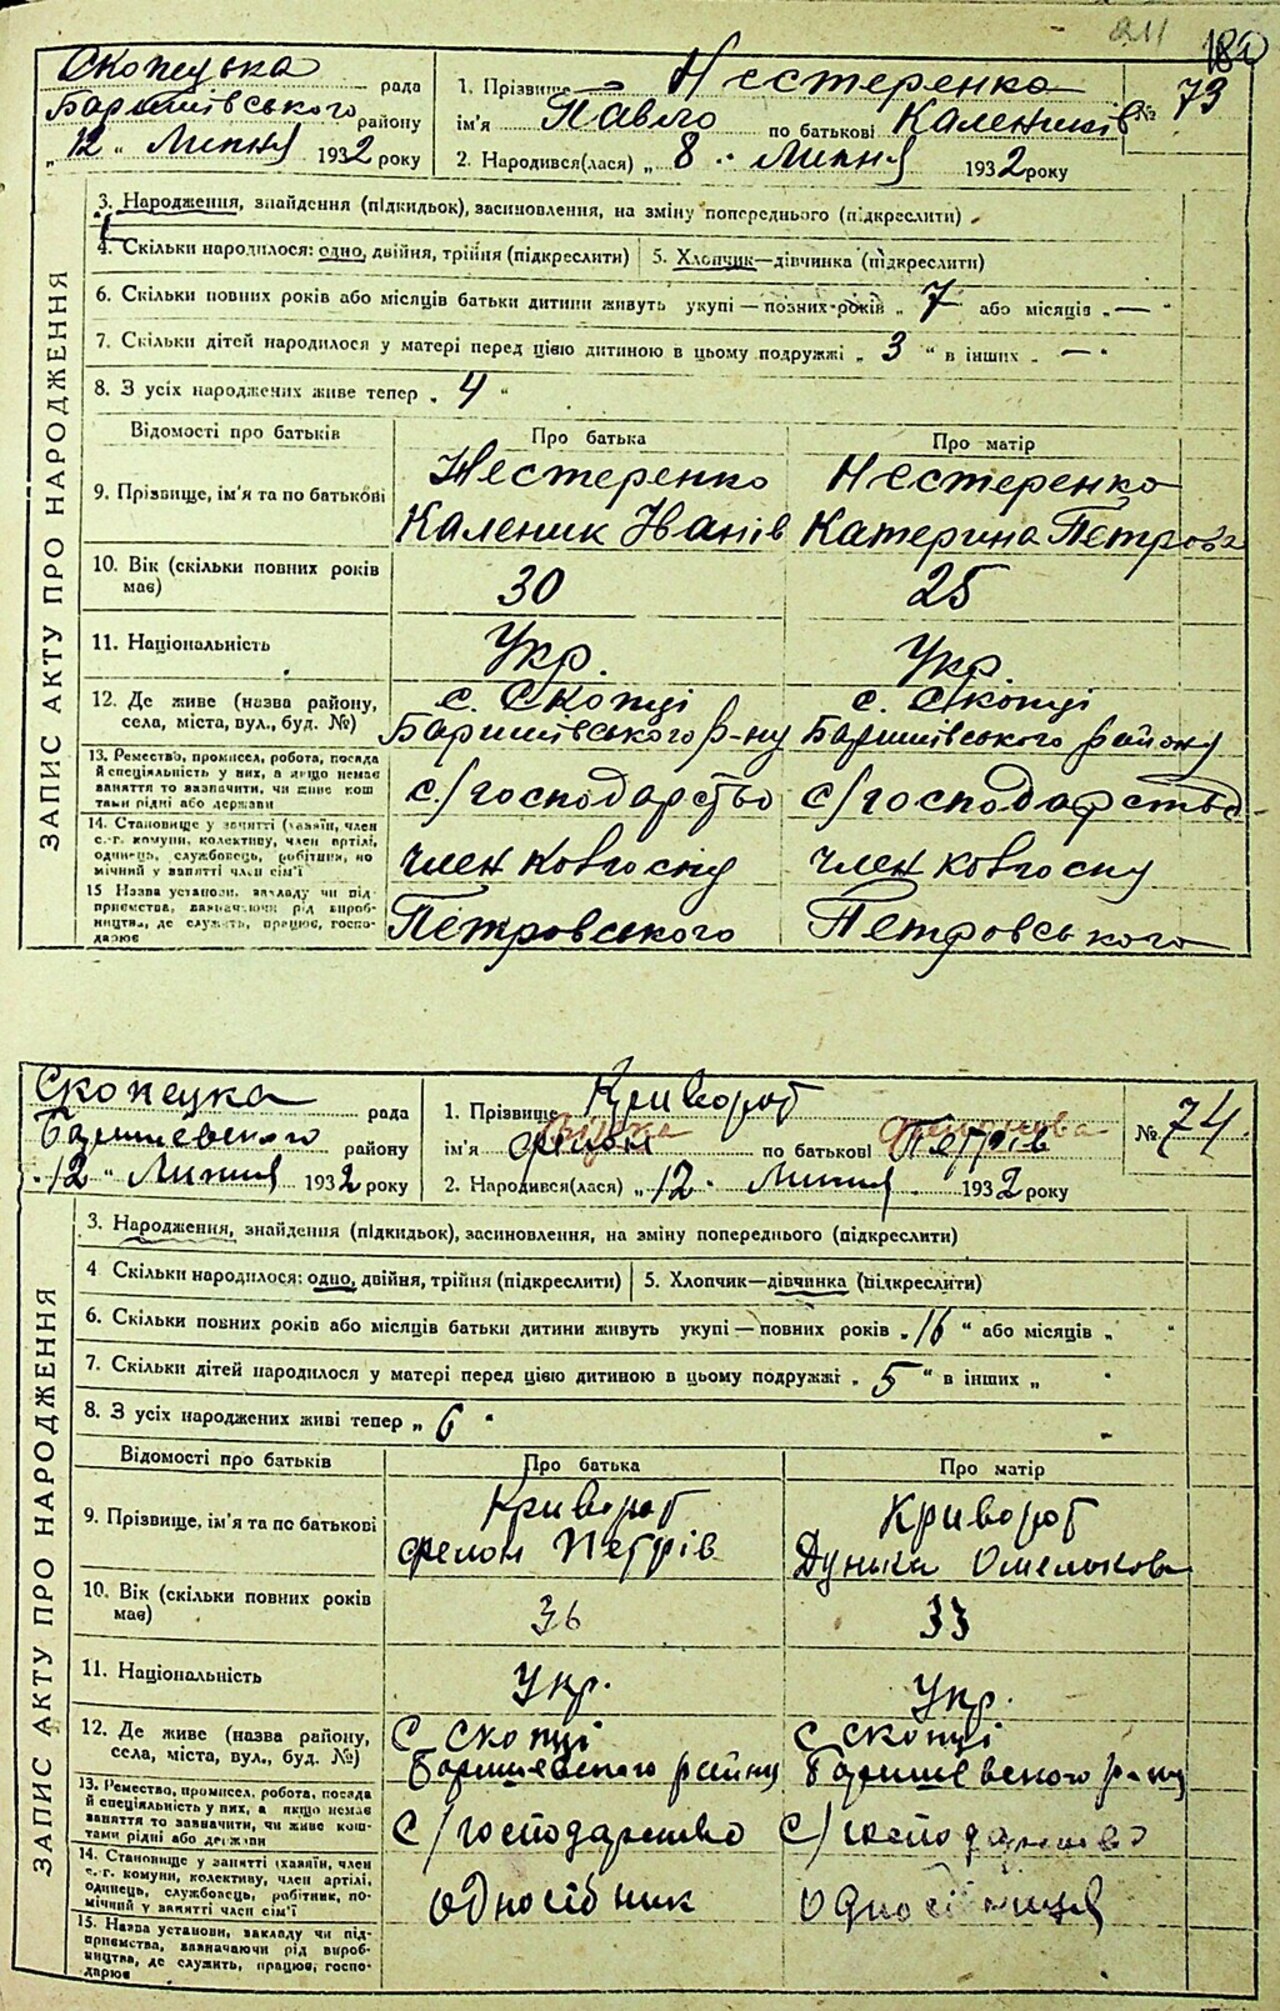 211 180
Скопецька рада
Баришівського району
„12" Липня 1932 року
1. Прізвище Нестеренко
ім'я Павло по батькові Калеників
№ 73
2. Народився(лася) „8" Липня 1932 року
ЗАПИС АКТУ ПРО НАРОДЖЕННЯ
3. Народження, знайдення (підкидьок), засиновлення, на зміну попереднього (підкреслити)
4. Скільки народилося: одно, двійня, трійня (підкреслити) 5. Хлопчик—дівчинка (підкреслити)
6. Скільки повних років або місяців батьки дитини живуть укупі — повних років „7" або місяців „—"
7. Скільки дітей народилося у матері перед цією дитиною в цьому подружжі „3" в інших „—"
8. З усіх народжених живе тепер „4"
Відомості про батьків Про батька Про матір
9. Прізвище, ім'я та по батькові
Нестеренко Каленик Іванів
Нестеренко Катерина Петрова
10. Вік (скільки повних років має) 30 25
11. Національність Укр. Укр.
12. Де живе (назва району, села, міста, вул., буд. №)
с. Скопці Баришівського р-ну
с. Скопці Баришівського району
13. Ремество, промисел, робота, посада й спеціяльність у них, а якщо немає заняття то зазначити, чи живе коштами рідні або держави
с/господарство с/господарство
14. Становище у занятті (хазяїн, член с.-г. комуни, колективу, член артілі, одинець, службовець, робітник, помічний у занятті член сім'ї
член ковгоспу член ковгоспу
15 Назва установи, закладу чи підприємства, вазначаючи рід виробництва, де служить, працює, господарює
Петровського Петровського
Скопецка рада
Баришевского району
„12" Липня 1932 року
1. Прізвище Криворот
ім'я Филон по батькові Петрів
Филонова
№ 74
2. Народився(лася) „12" Липня 1932 року
ЗАПИС АКТУ ПРО НАРОДЖЕННЯ
3. Народження, знайдення (підкидьок), засиновлення, на зміну попереднього (підкреслити)
4 Скільки народилося: одно, двійня, трійня (підкреслити) 5. Хлопчик—дівчинка (підкреслити)
6. Скільки повних років або місяців батьки дитини живуть укупі — повних років „16" або місяців „ "
7. Скільки дітей народилося у матері перед цією дитиною в цьому подружжі „5" в інших „ "
8. З усіх народжених живі тепер „6"
Відомості про батьків Про батька Про матір
9. Прізвище, ім'я та по батькові
Криворот Филон Петрів
Криворот Дунька Омелькова
10. Вік (скільки повних років має) 36 33
11. Національність Укр. Укр.
12. Де живе (назва району, села, міста, вул., буд. №)
С Скопці Баришевского району
С Скопці Баришевского р-ну
13. Ремество, промисел, робота, посада й спеціяльність у них, а якщо немає заняття то зазначити, чи живе коштами рідні або держави
С/господарство С/господарство
14. Становище у занятті (хазяїн, член с.-г. комуни, колективу, член артілі, одинець, службовець, робітник, помічний у занятті член сім'ї
Односібник Односібниця
15. Назва установи, закладу чи підприємства, вазначаючи рід виробництва, де служить, працює, господарює